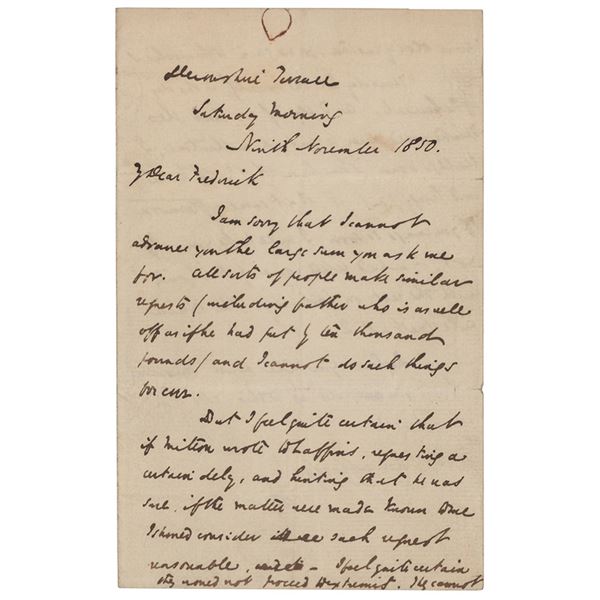 Devonshire Terrace
Saturday Morning
Ninth November 1850.
My Dear Frederick
I am sorry that I cannot
advance you the large sum you ask me
for. All sorts of people make similar
requests (including father who is as well
off as if he had put by ten thousand
pounds) and I cannot do such things
for ever.
But I feel quite certain that
if Mitton wrote to Chaffins, requesting a
certain delay, and hinting that he was
sure, if the matter were made known to me
I should consider such request
reasonable, – I feel quite certain
they would not proceed to extremes. They cannot